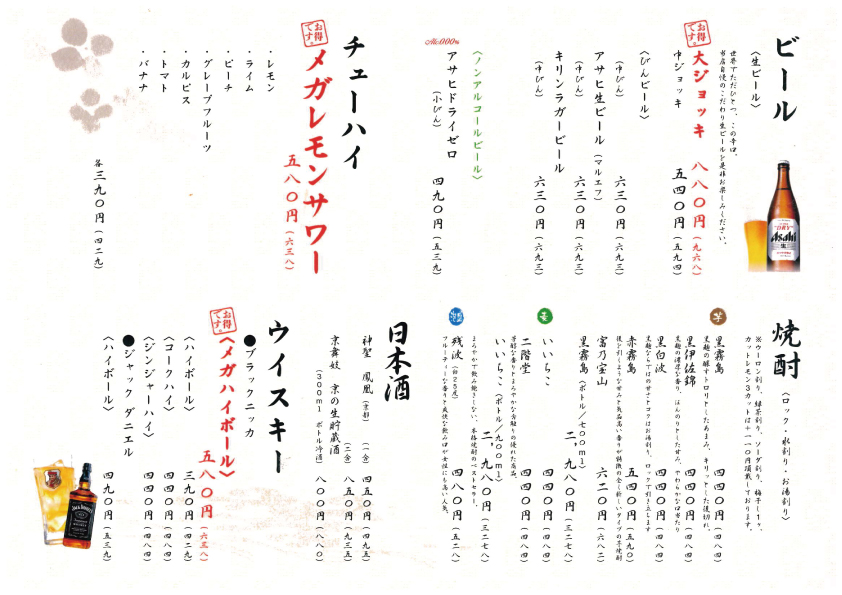 ビール
〈生ビール〉
世界でただひとつ、この辛口。
当店自慢のこだわり生ビールを是非お楽しみください。
お得です。
大ジョッキ 八八〇円(九六八)
中ジョッキ 五四〇円(五九四)
〈びんビール〉
(中びん) 六三〇円(六九三)
アサヒ生ビール(マルエフ)
(中びん) 六三〇円(六九三)
キリンラガービール
(中びん) 六三〇円(六九三)
〈ノンアルコールビール〉
Alc.0.00%
アサヒドライゼロ
(小びん) 四九〇円(五三九)
Asahi
チューハイ
お得です。
メガレモンサワー
五八〇円(六三八)
・レモン
・ライム
・ピーチ
・グレープフルーツ
・カルピス
・トマト
・バナナ
各三九〇円(四二九)
焼酎
〈ロック・水割り・お湯割り〉
※ウーロン割り、緑茶割り、ソーダ割り、梅干し1ヶ、
カットレモン3カットは+一一〇円頂戴しております。
芋
黒霧島 四四〇円(四八四)
黒麹の醸すトロリとしたあまみ、キリッとした後切れ。
黒伊佐錦 四四〇円(四八四)
黒麹の濃厚な香り、ほんのりとした甘み、やわらかな口当たり
黒白波 四四〇円(四八四)
黒麹ならではの甘さとコクはお湯割り、ロックで引き立ちます
赤霧島 五四〇円(五九四)
後を引くような甘みと気品高い香りが特徴の全く新しいタイプの芋焼酎
富乃宝山 六二〇円(六八二)
黒霧島(ボトル/七〇〇ml) 二、九八〇円(三二七八)
麦
いいちこ 四四〇円(四八四)
二階堂 四四〇円(四八四)
いいちこ(ボトル/九〇〇ml) 二、九八〇円(三二七八)
まろやかで飲み飽きしない、本格焼酎のベストセラー。
残波(白25度) 四八〇円(五二八)
フルーティーな香りと爽快な飲み口が女性にも高い人気。
日本酒
神聖 鳳凰(京都)(一合) 四五〇円(四九五)
(二合) 八五〇円(九三五)
京舞妓 京の生貯蔵酒
(300ml ボトル冷酒) 八〇〇円(八八〇)
ウイスキー
●ブラックニッカ
お得です。
〈メガハイボール〉
五八〇円(六三八)
〈ハイボール〉 三九〇円(四二九)
〈コークハイ〉 四四〇円(四八四)
〈ジンジャーハイ〉 四四〇円(四八四)
●ジャック ダニエル
〈ハイボール〉 四九〇円(五三九)